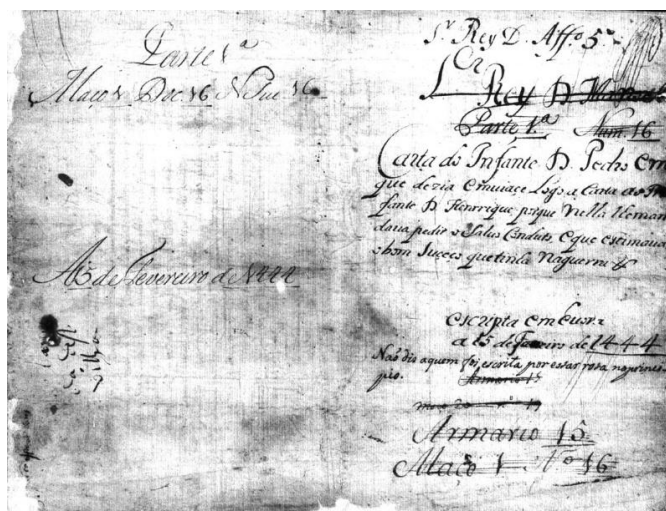 Parte 1ª
Maço 1 Doc 16 N Suc 16.
A 15 de Fevereiro d 1444
Sr Rey D. Affo. 5º
Rey D.
Parte 1.ª Num. 16
Carta do Infante D. Pedro Em
que dezia Emviace Logo a Carta do In
fante D Henrrique porque Nella lhe man
dava pedir o Salvo Conduto, Eque estimava
o bom Suceço que tinha Naguerra &
escripta em Evora
a 15 de Janeiro de 1444
Naõ dis aquem foi escrita, por estar rota noprinci-
pio. Armario 15
Armario 15
Maço 1 Nº 16